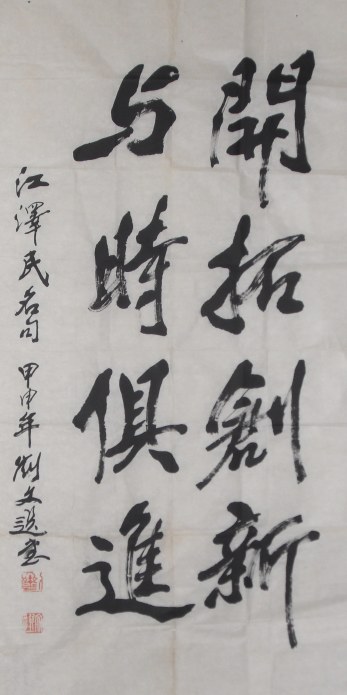 開拓創新
与時俱進
江澤民名句 甲申年劉文選書